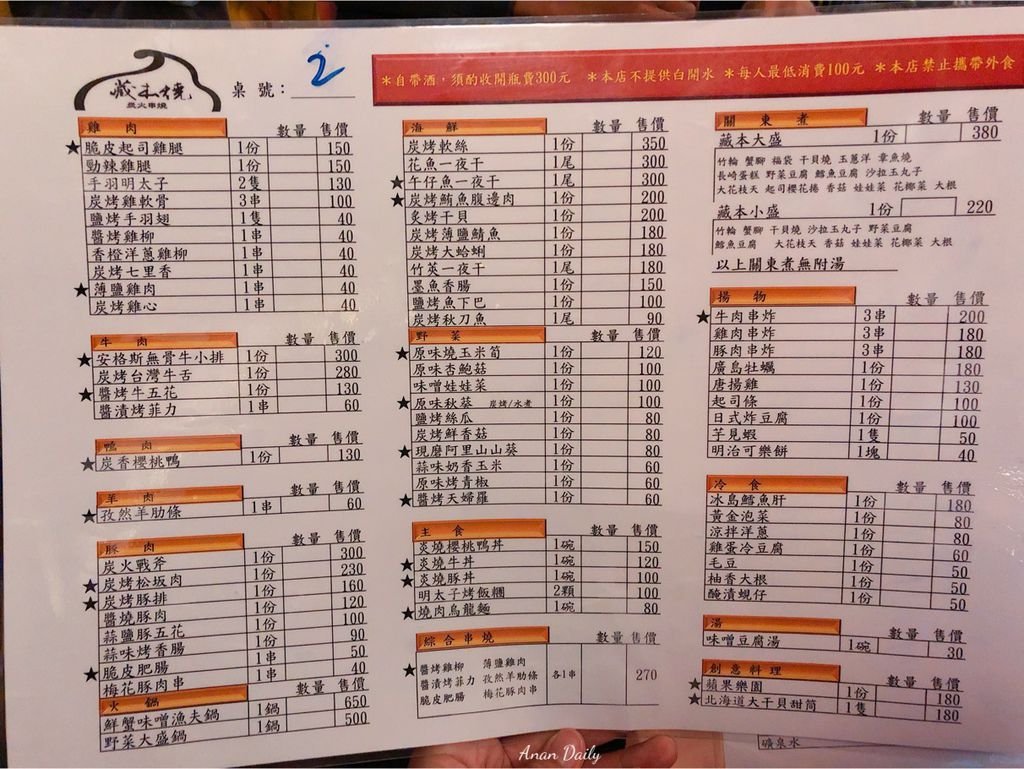 藏本燒
炭火串燒
桌號：2
＊自帶酒，須酌收開瓶費300元 ＊本店不提供白開水 ＊每人最低消費100元 ＊本店禁止攜帶外食
雞肉 數量 售價
★脆皮起司雞腿 1份 150
勁辣雞腿 1份 150
手羽明太子 2隻 130
炭烤雞軟骨 3串 100
鹽烤手羽翅 1隻 40
醬烤雞柳 1串 40
香橙洋蔥雞柳 1串 40
炭烤七里香 1串 40
★薄鹽雞肉 1串 40
炭烤雞心 1串 40
牛肉 數量 售價
★安格斯無骨牛小排 1份 300
炭烤台灣牛舌 1份 280
★醬烤牛五花 1份 130
醬漬烤菲力 1串 60
鴨肉 數量 售價
★炭香櫻桃鴨 1份 130
羊肉 數量 售價
★孜然羊肋條 1串 60
豚肉 數量 售價
炭火戰斧 1份 300
★炭烤松坂肉 1份 230
★炭烤豚排 1份 160
醬燒豚肉 1份 120
蒜鹽豚五花 1份 100
蒜味烤香腸 1份 90
★脆皮肥腸 1串 50
梅花豚肉串 1串 40
火鍋 數量 售價
鮮蟹味噌漁夫鍋 1鍋 650
野菜大盛鍋 1鍋 500
海鮮 數量 售價
炭烤軟絲 1份 350
花魚一夜干 1尾 300
★午仔魚一夜干 1尾 300
★炭烤鮪魚腹邊肉 1份 200
炙烤干貝 1份 200
炭烤薄鹽鯖魚 1份 180
炭烤大蛤蜊 1份 180
竹莢一夜干 1尾 180
墨魚香腸 1份 150
鹽烤魚下巴 1份 100
炭烤秋刀魚 1尾 90
野菜 數量 售價
★原味燒玉米筍 1份 120
原味杏鮑菇 1份 100
味噌娃娃菜 1份 100
★原味秋葵 炭烤/水煮 1份 100
鹽烤絲瓜 1份 80
炭烤鮮香菇 1份 80
★現磨阿里山山葵 1份 80
蒜味奶香玉米 1份 60
原味烤青椒 1份 60
★醬烤天婦羅 1份 60
主食 數量 售價
炎燒櫻桃鴨丼 1碗 150
★炎燒牛丼 1碗 120
★炎燒豚丼 1碗 100
明太子烤飯糰 2顆 100
★燒肉烏龍麵 1碗 80
綜合串燒 數量 售價
★醬烤雞柳 薄鹽雞肉
醬漬烤菲力 孜然羊肋條 各1串 270
脆皮肥腸 梅花豚肉串
關東煮 數量 售價
藏本大盛 1份 380
竹輪 蟹腳 福袋 干貝燒 玉蔥洋 章魚燒
長崎蛋糕 野菜豆腐 鱈魚豆腐 沙拉玉丸子
大花枝天 起司櫻花捲 香菇 娃娃菜 花椰菜 大根
藏本小盛 1份 220
竹輪 蟹腳 干貝燒 沙拉玉丸子 野菜豆腐
鱈魚豆腐 大花枝天 香菇 娃娃菜 花椰菜 大根
以上關東煮無附湯
揚物 數量 售價
★牛肉串炸 3串 200
雞肉串炸 3串 180
豚肉串炸 3串 180
廣島牡蠣 1份 180
唐揚雞 1份 130
起司條 1份 100
日式炸豆腐 1份 100
芋見蝦 1隻 50
明治可樂餅 1塊 40
冷食 數量 售價
冰島鱈魚肝 1份 180
黃金泡菜 1份 80
涼拌洋蔥 1份 80
雞蛋冷豆腐 1份 60
毛豆 1份 50
柚香大根 1份 50
醃漬蜆仔 1份 50
湯 數量 售價
味噌豆腐湯 1碗 30
創意料理 數量 售價
★蘋果樂園 1份 180
★北海道大干貝甜筒 1隻 180
礦泉水
Anan Daily